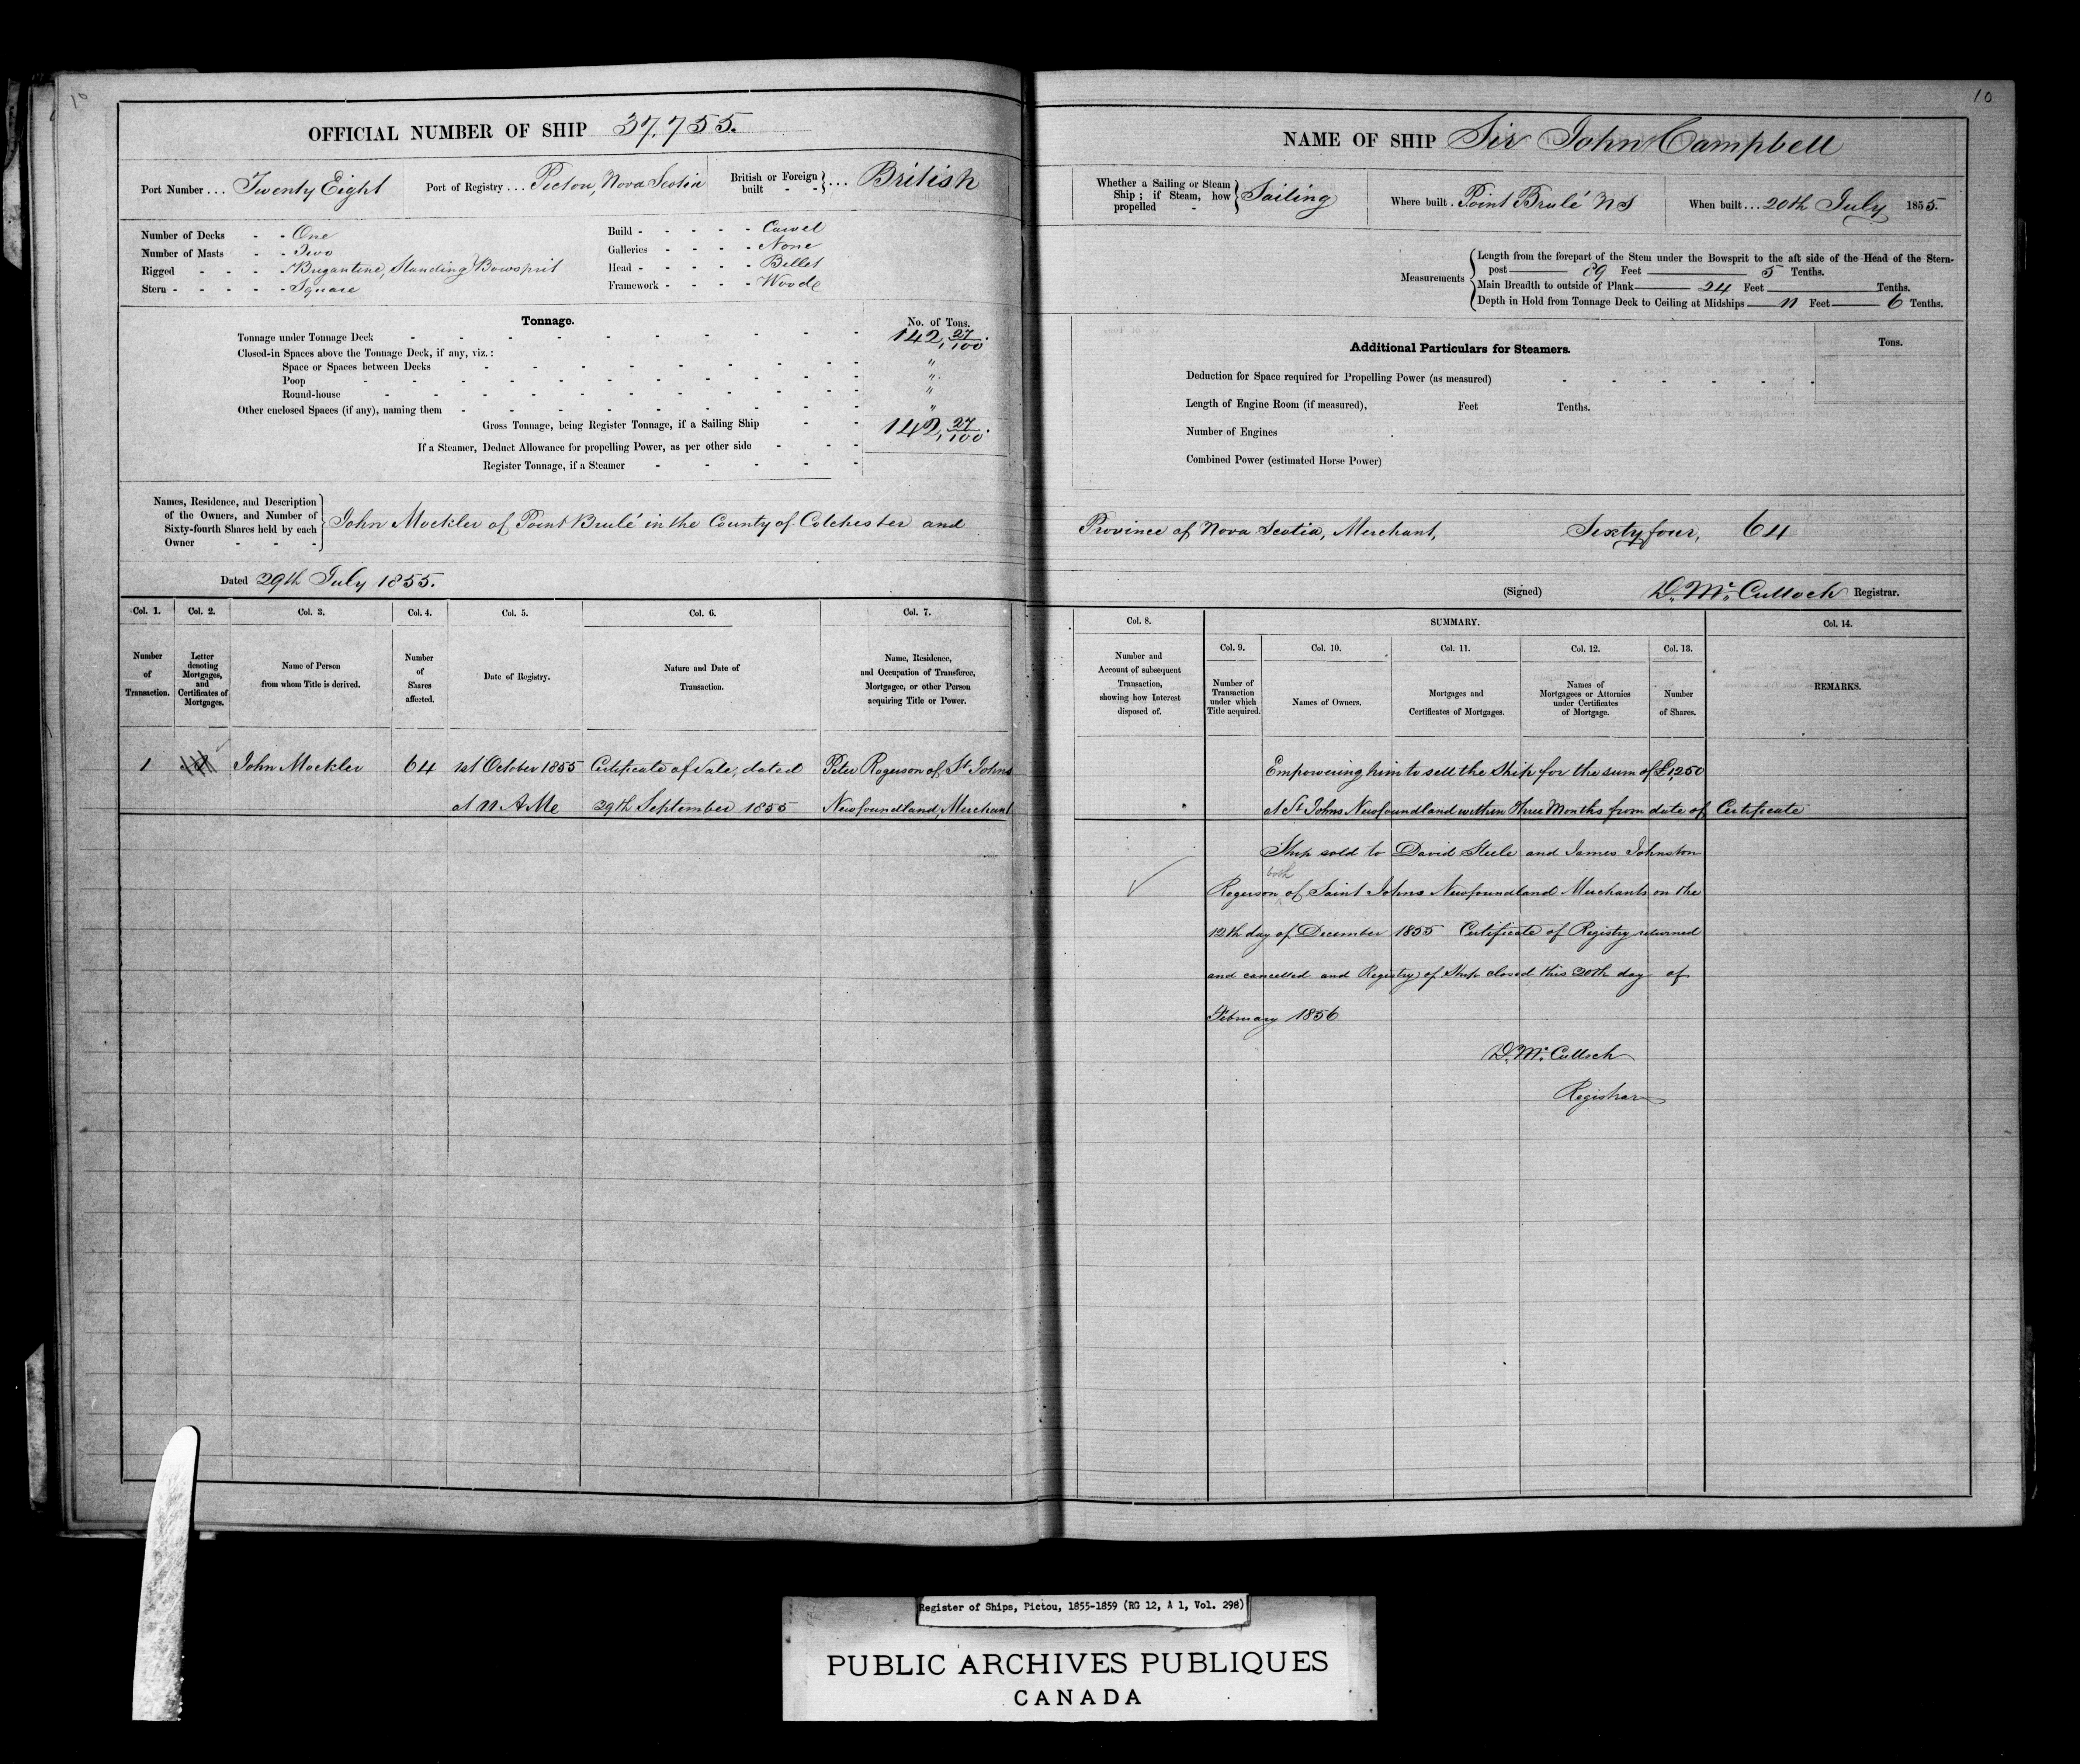 10
OFFICIAL NUMBER OF SHIP 37,755.
Port Number ... Twenty Eight Port of Registry ... Pictou, Nova Scotia British or Foreign built - - } ... British
Number of Decks - - One
Number of Masts - - Two
Rigged - - - - Brigantine, Standing Bowsprit
Stern - - - - - Square
Build - - - - - Carvel
Galleries - - - - None
Head - - - - - Billet
Framework - - - - Woode
Tonnage.
No. of Tons.
Tonnage under Tonnage Deck 142,27/100.
Closed-in Spaces above the Tonnage Deck, if any, viz.:
Space or Spaces between Decks "
Poop "
Round-house "
Other enclosed Spaces (if any), naming them "
Gross Tonnage, being Register Tonnage, if a Sailing Ship 142,27/100.
If a Steamer, Deduct Allowance for propelling Power, as per other side
Register Tonnage, if a Steamer
Names, Residence, and Description
of the Owners, and Number of
Sixty-fourth Shares held by each
Owner
John Mockler of Point Brulé in the County of Colchester and
Dated 29th July 1855.
Col. 1. Col. 2. Col. 3. Col. 4. Col. 5. Col. 6. Col. 7.
Number of Transaction.
Letter denoting Mortgages, and Certificates of Mortgages.
Name of Person from whom Title is derived.
Number of Shares affected.
Date of Registry.
Nature and Date of Transaction.
Name, Residence, and Occupation of Transferee, Mortgagee, or other Person acquiring Title or Power.
1 John Mockler 64 1st October 1855 Certificate of Sale, dated Peter Rogerson of St Johns
at 11 A Me 29th September 1855 Newfoundland, Merchant
10
NAME OF SHIP Sir John Campbell
Whether a Sailing or Steam
Ship; if Steam, how
propelled -
Sailing
Where built . Point Brulé N S
When built ... 20th July 1855.
Measurements
Length from the forepart of the Stem under the Bowsprit to the aft side of the Head of the Stern-
post 89 Feet 5 Tenths.
Main Breadth to outside of Plank 24 Feet Tenths.
Depth in Hold from Tonnage Deck to Ceiling at Midships 11 Feet 6 Tenths.
Additional Particulars for Steamers.
Tons.
Deduction for Space required for Propelling Power (as measured)
Length of Engine Room (if measured), Feet Tenths.
Number of Engines
Combined Power (estimated Horse Power)
Province of Nova Scotia, Merchant, Sixty four, 64
(Signed) D. Mc. Culloch Registrar.
Col. 8. SUMMARY. Col. 14.
Col. 9. Col. 10. Col. 11. Col. 12. Col. 13.
Number and Account of subsequent Transaction, showing how Interest disposed of.
Number of Transaction under which Title acquired.
Names of Owners.
Mortgages and Certificates of Mortgages.
Names of Mortgagees or Attornies under Certificates of Mortgage.
Number of Shares.
REMARKS.
Empowering him to sell the Ship for the sum of £1,250
at St Johns Newfoundland within Three Months from date of Certificate
Ship sold to David Steele and James Johnston
both
Rogerson of Saint Johns Newfoundland Merchants on the
12th day of December 1855 Certificate of Registry returned
and cancelled and Registry of Ship closed this 20th day of
February 1856
D. Mc. Culloch
Registrar
Register of Ships, Pictou, 1855-1859 (RG 12, A 1, Vol. 298)
PUBLIC ARCHIVES PUBLIQUES
CANADA